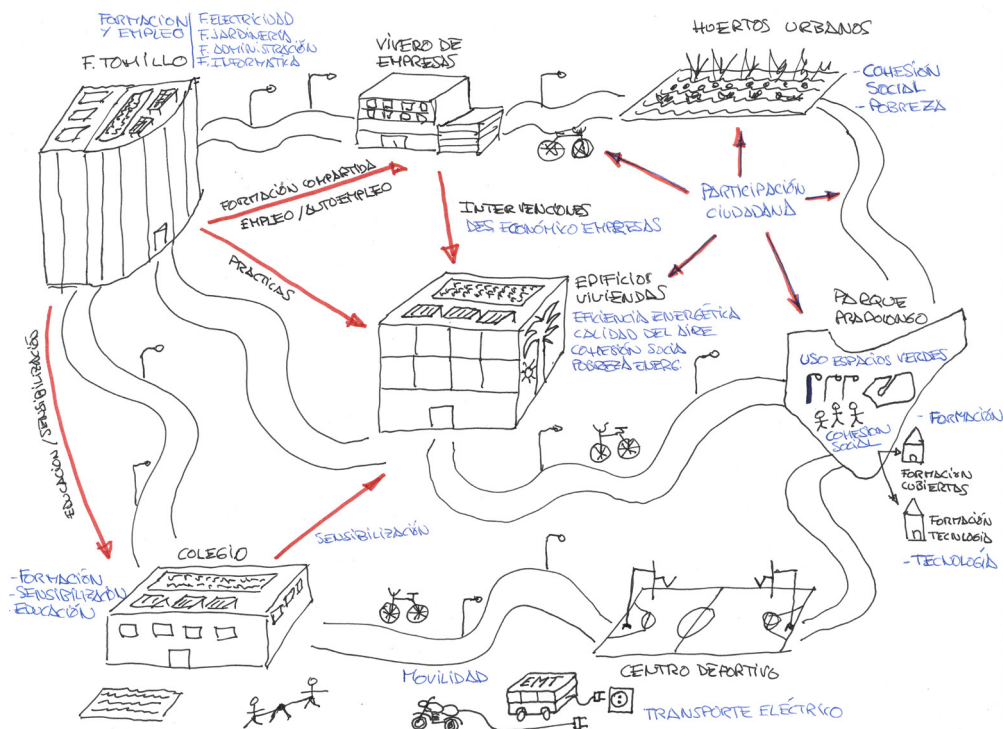 FORMACIÓN
Y EMPLEO
F. ELECTRICIDAD
F. JARDINERÍA
F. ADMINISTRACIÓN
F. INFORMATICA
F. TOMILLO
VIVERO DE
EMPRESAS
HUERTOS URBANOS
- COHESIÓN
SOCIAL
- POBREZA
FORMACIÓN COMPARTIDA
EMPLEO / AUTOEMPLEO
PRACTICAS
INTERVENCIONES
DES ECONÓMICO EMPRESAS
PARTICIPACIÓN
CIUDADANA
EDIFICIOS
VIVIENDAS
EFICIENCIA ENERGÉTICA
CALIDAD DEL AIRE
COHESIÓN SOCIA
POBREZA ENERG.
PARQUE
PRADOLONGO
USO ESPACIOS VERDES
COHESION
SOCIAL
- FORMACIÓN
FORMACION
CUBIERTAS
FORMACIÓN
TECNLOGIA
- TECNOLOGÍA
EDUCACIÓN / SENSIBILIZACIÓN
SENSIBILIZACIÓN
COLEGIO
- FORMACIÓN
- SENSIBILIZACIÓN
EDUCACIÓN
CENTRO DEPORTIVO
MOVILIDAD
EMT
TRANSPORTE ELÉCTRICO